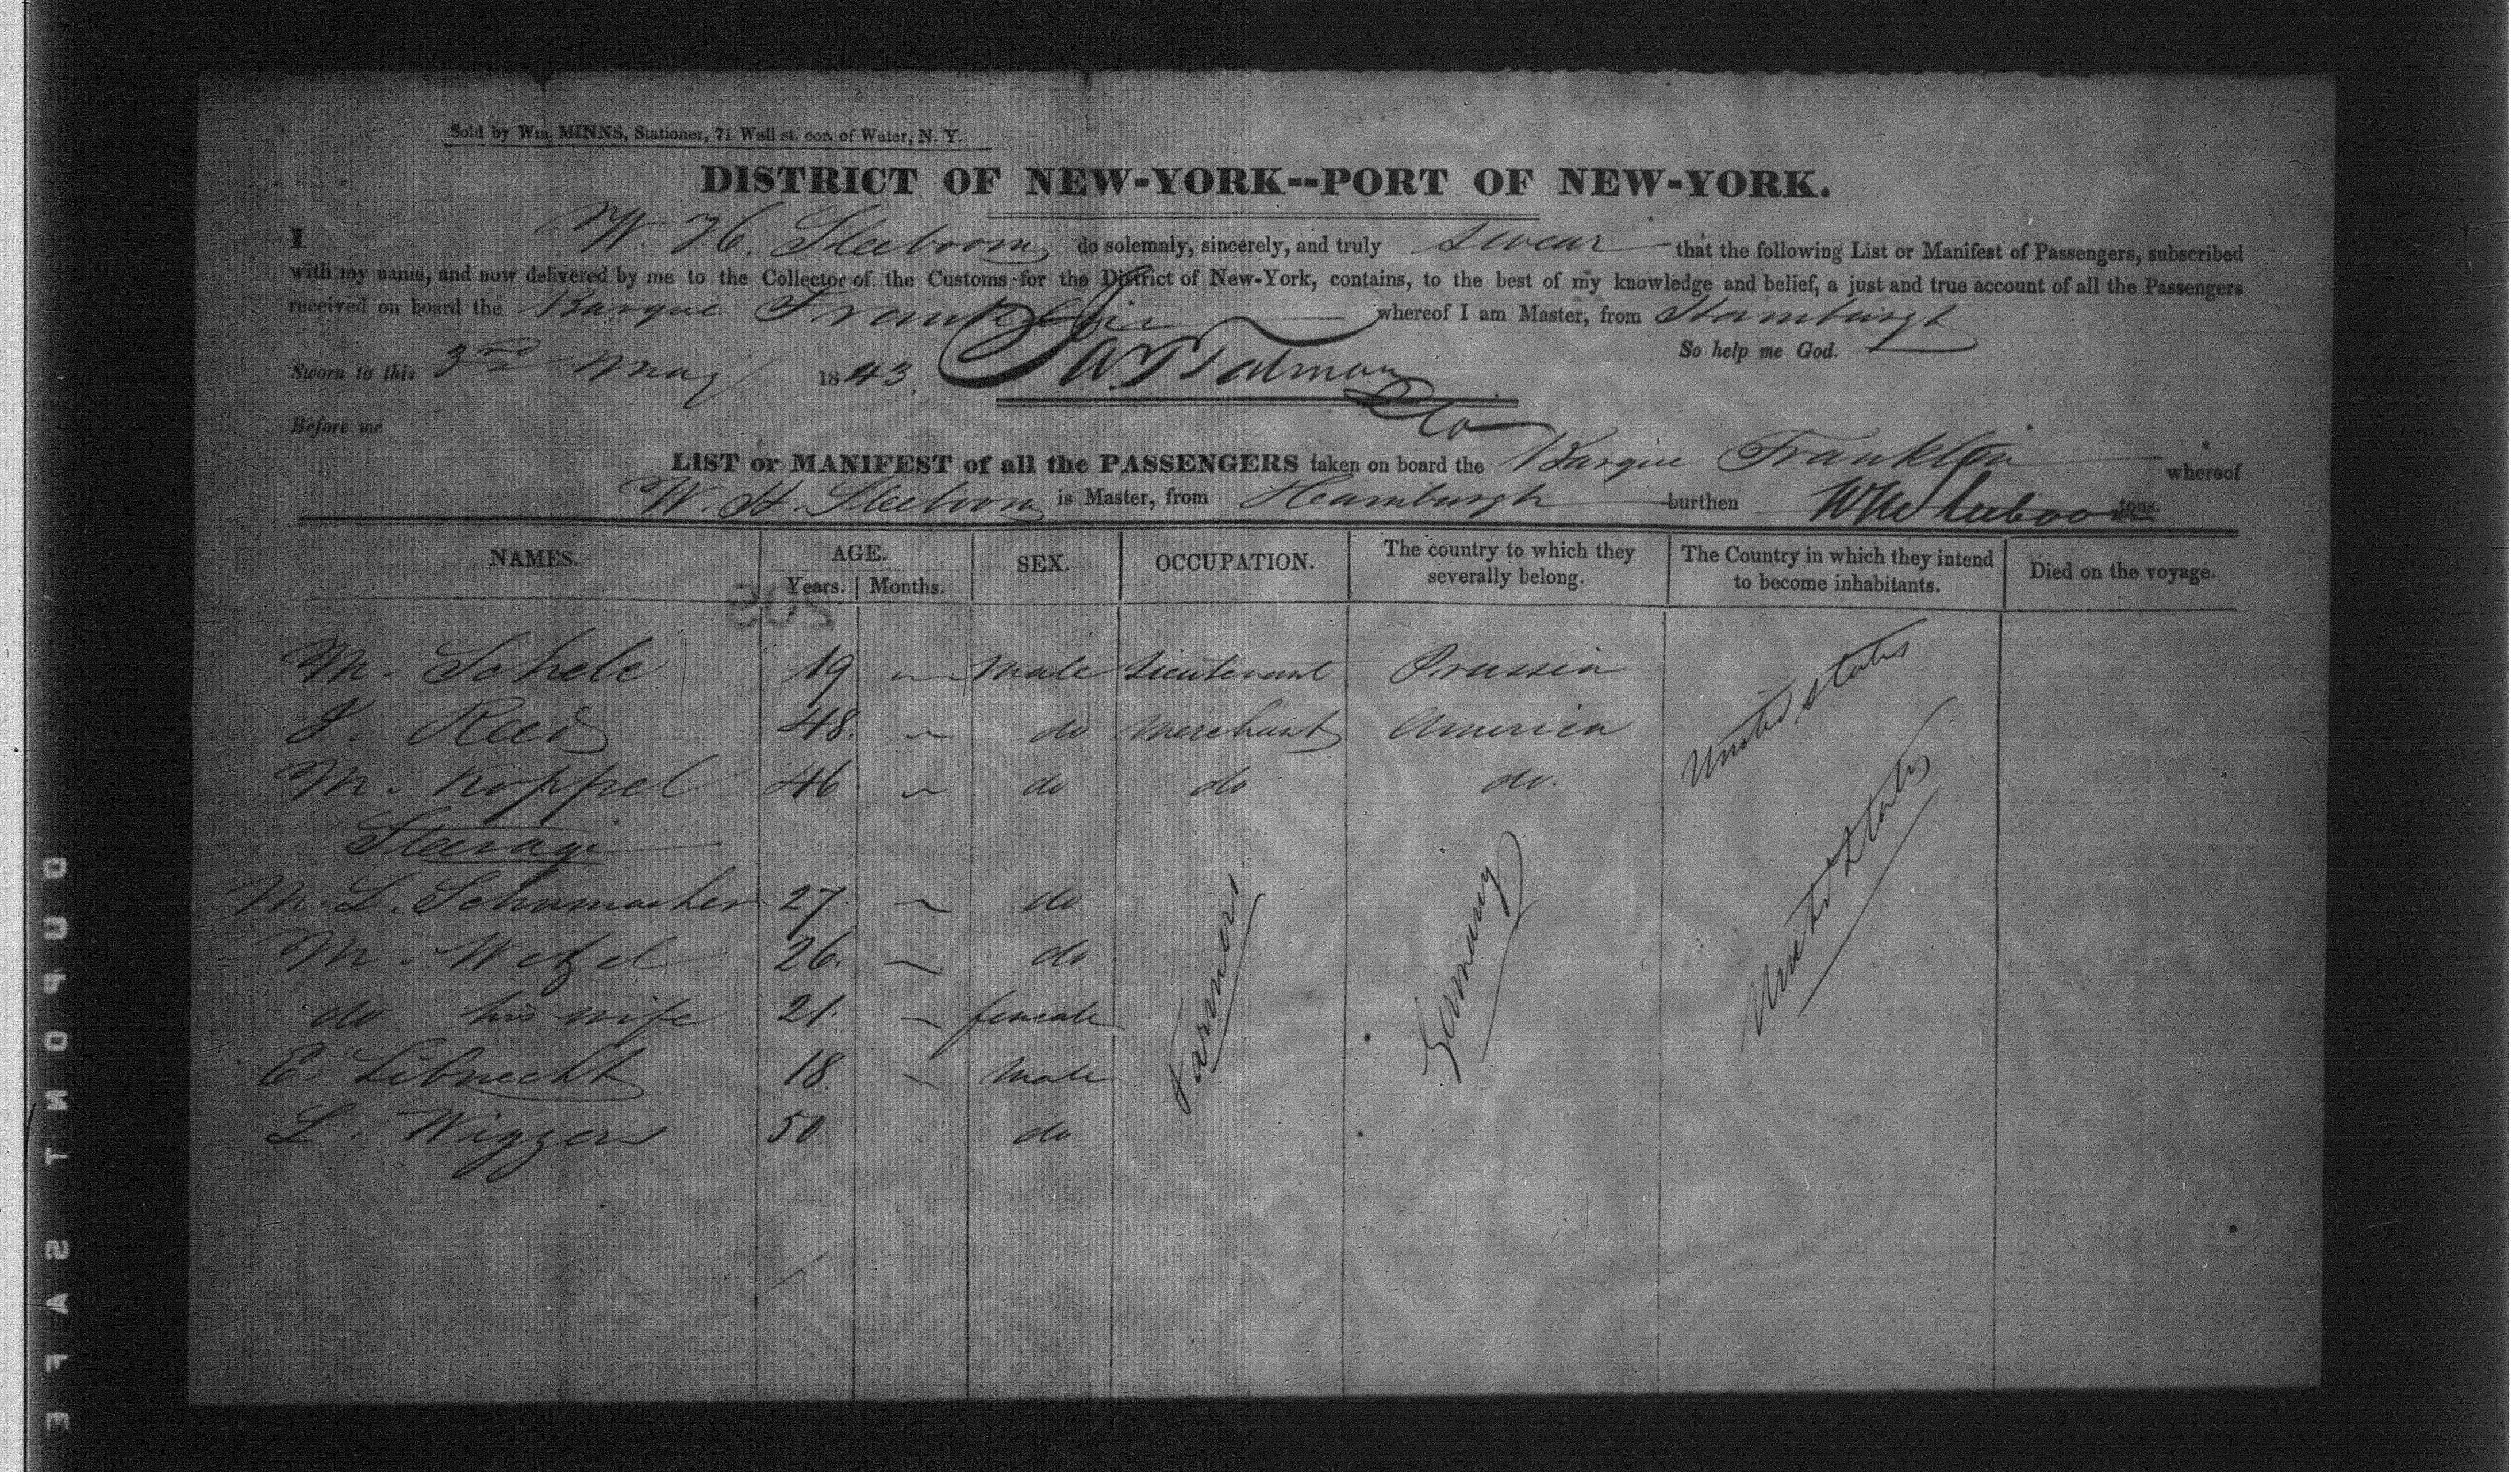 Sold by Wm. MINNS, Stationer, 71 Wall st. cor. of Water, N. Y.
DISTRICT OF NEW-YORK--PORT OF NEW-YORK.
I W. H. Sleeboom do solemnly, sincerely, and truly swear that the following List or Manifest of Passengers, subscribed
with my name, and now delivered by me to the Collector of the Customs for the District of New-York, contains, to the best of my knowledge and belief, a just and true account of all the Passengers
received on board the Barque Franklin whereof I am Master, from Hamburgh
So help me God.
Sworn to this 3rd May 1843
Before me
LIST or MANIFEST of all the PASSENGERS taken on board the Barque Franklin whereof
W. H. Sleeboom is Master, from Hamburgh burthen tons.
NAMES. AGE. SEX. OCCUPATION. The country to which they severally belong. The Country in which they intend to become inhabitants. Died on the voyage.
Years. Months.
M. Schele 19 Male Lieutenant Prussia United States
J. Reed 48. do Merchant America
M. Koppel 46 do do do.
Steerage
M. L. Schumacher 27. do Farmers. Germany United States
M. Wetzel 26. do
do his wife 21. female
E. Libnecht 18. Male
L. Wiggers 50 do
209
DUPONT SAFE